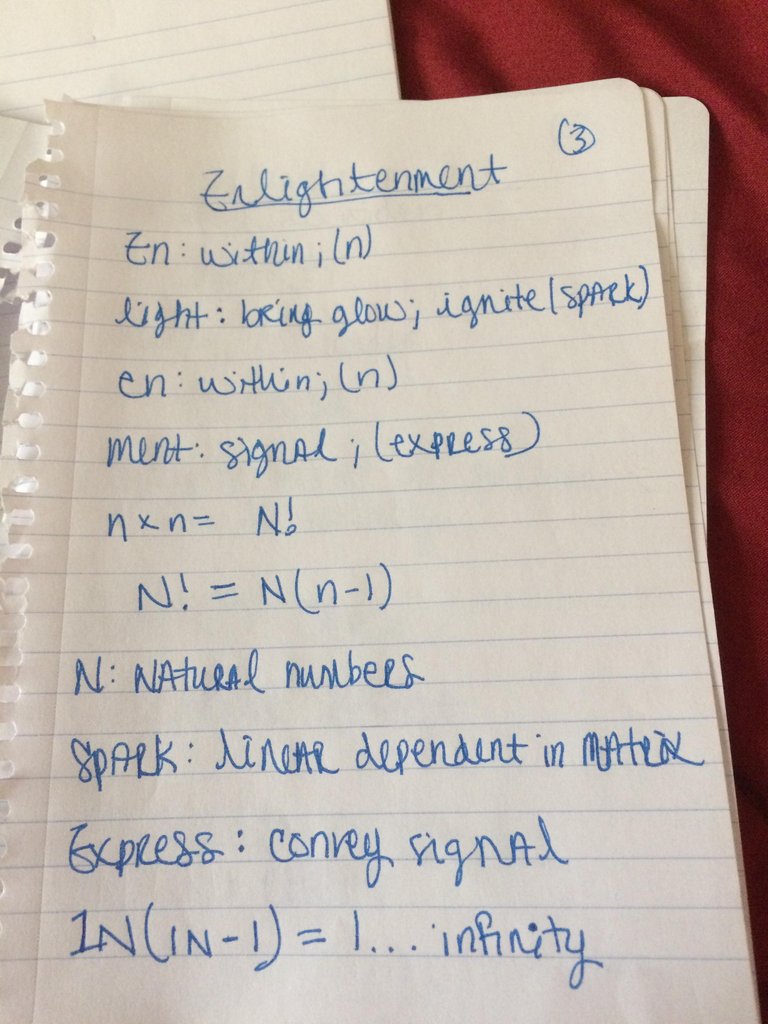 (3)
Enlightenment
En: within; (n)
light: bring glow; ignite (SPARK)
en: within; (n)
ment: signal; (express)
n x n = N!
N! = N(n-1)
N: Natural numbers
Spark: linear dependent in matrix
Express: convey signal
IN(IN-1) = 1... infinity